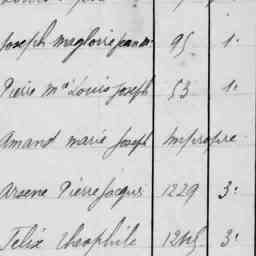 Joseph Magloire Jean M. 95 1.
Pierre Mie Louis Joseph 53 1.
Amand Marie Joseph Impropre
Arsene Pierre Jacques 1229 3.
Felix Theophile 3.